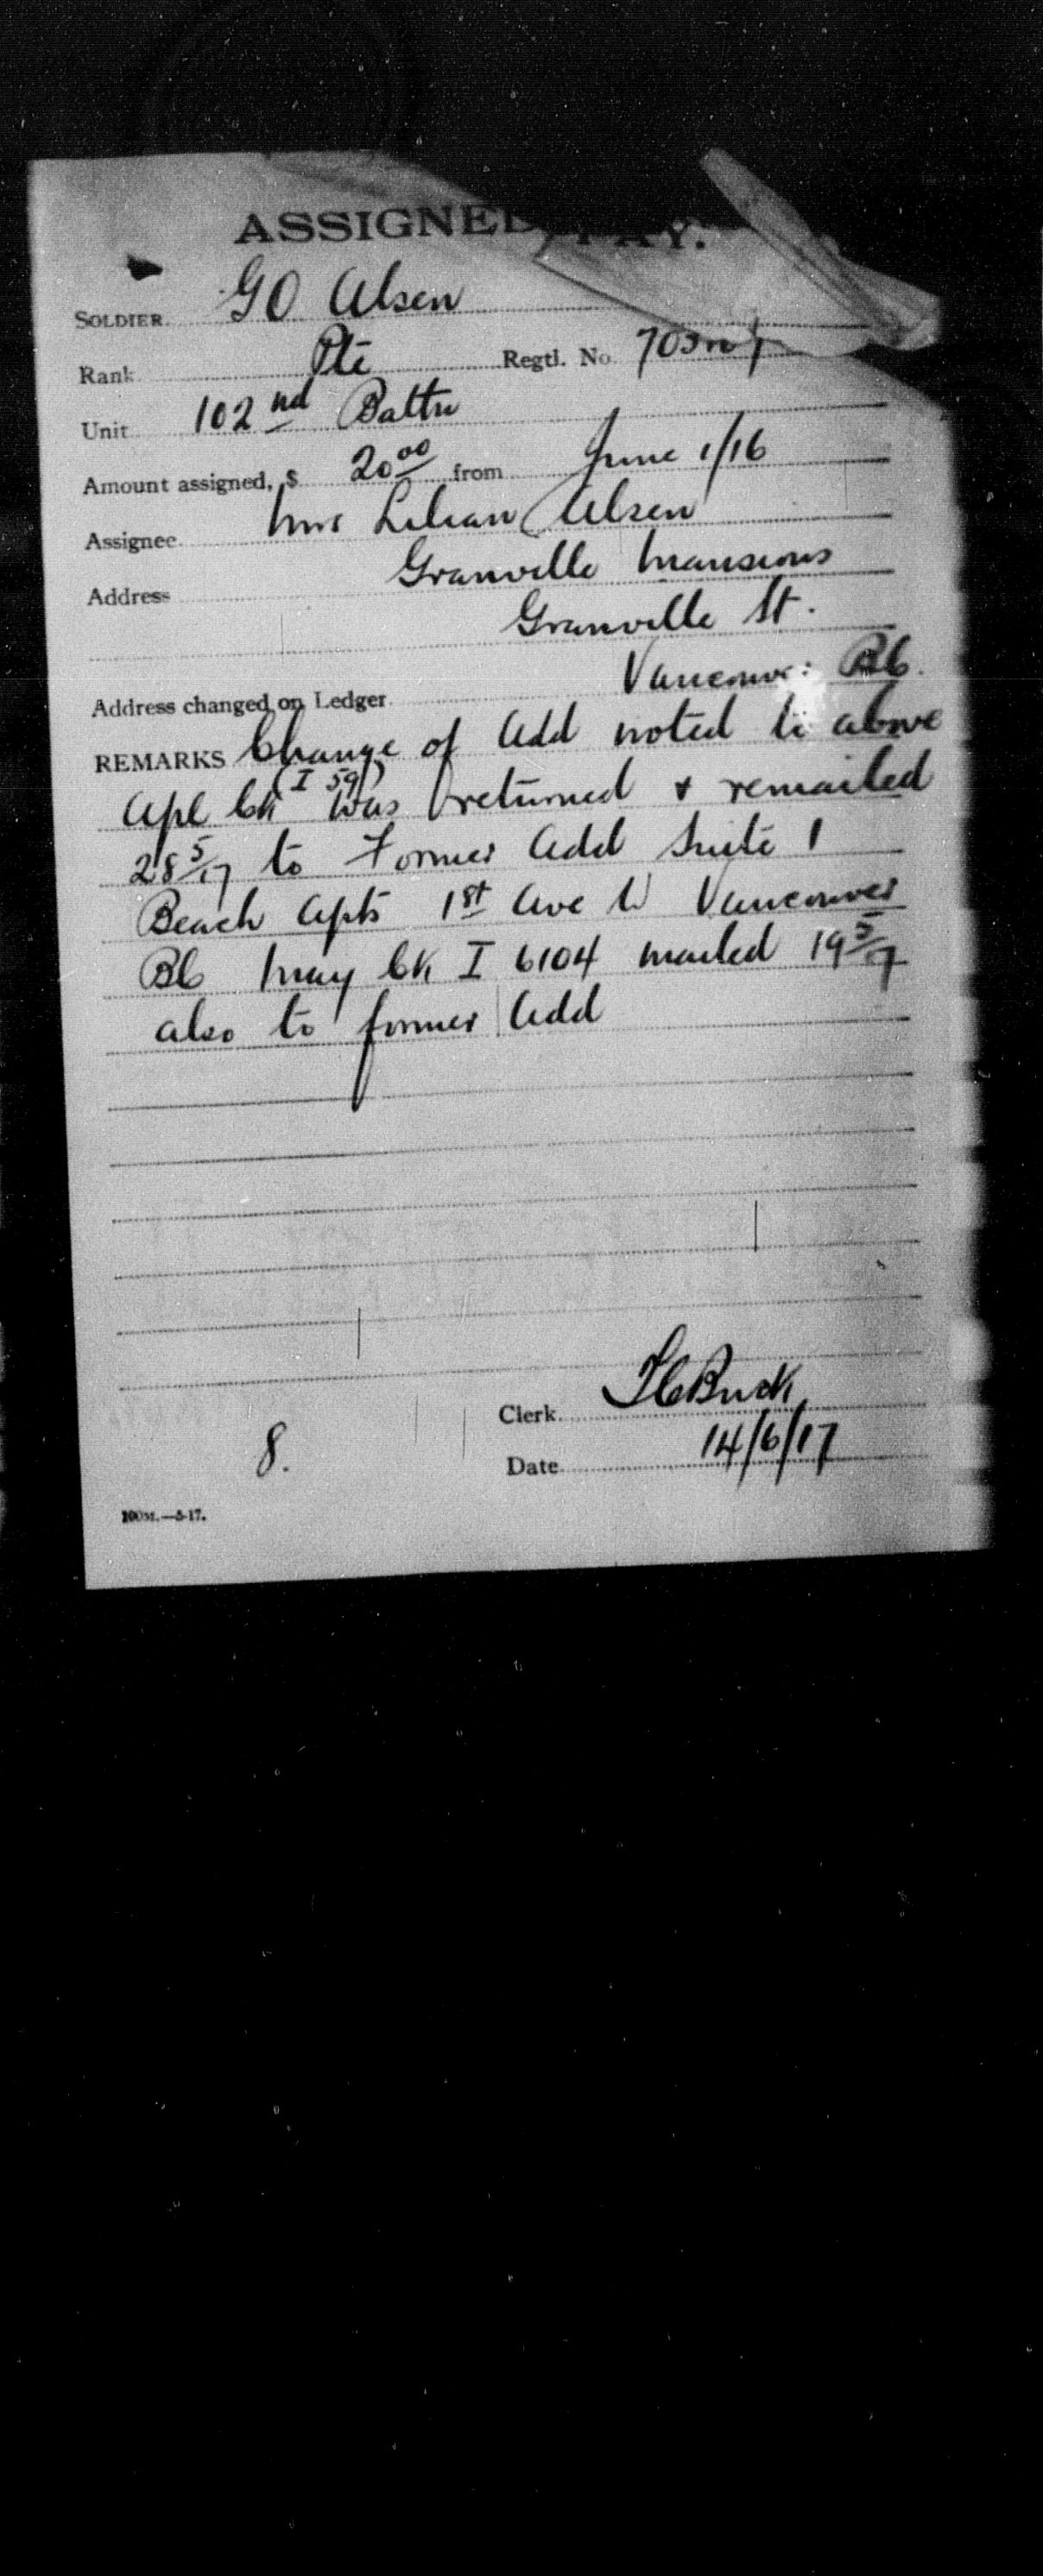 ASSIGNED PAY.
SOLDIER GO Olsen
Rank Pte Regtl. No.
Unit 102nd Battn
Amount assigned, $ 20 00 from June 1/16
Assignee Mrs Lilian Olsen
Address Granville Mansions
Granville St.
Address changed on Ledger Vancouver BC.
REMARKS Change of Add noted to above
(I 59)
Apl Ck was returned & remailed
28 5/17 to Former Add Suite 1
Beach Apts 1st Ave W Vancouver
BC May Ck I 6104 mailed 19 5/17
also to former Add
Clerk Buck
8.
Date 14/6/17
100M.—5-17.